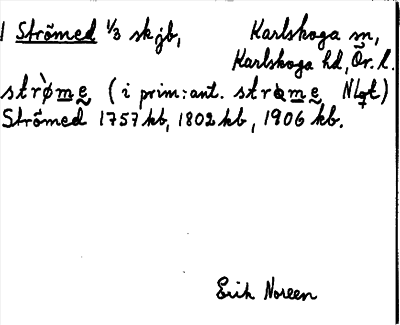 Strömed 1/3 sk jb, Karlskoga sn,
Karlskoga hd, Ör. l.
strø̀me (i prim: ant. strøme NLgt)
Strömed 1757 kb, 1802 kb, 1906 kb.
Erik Noreen